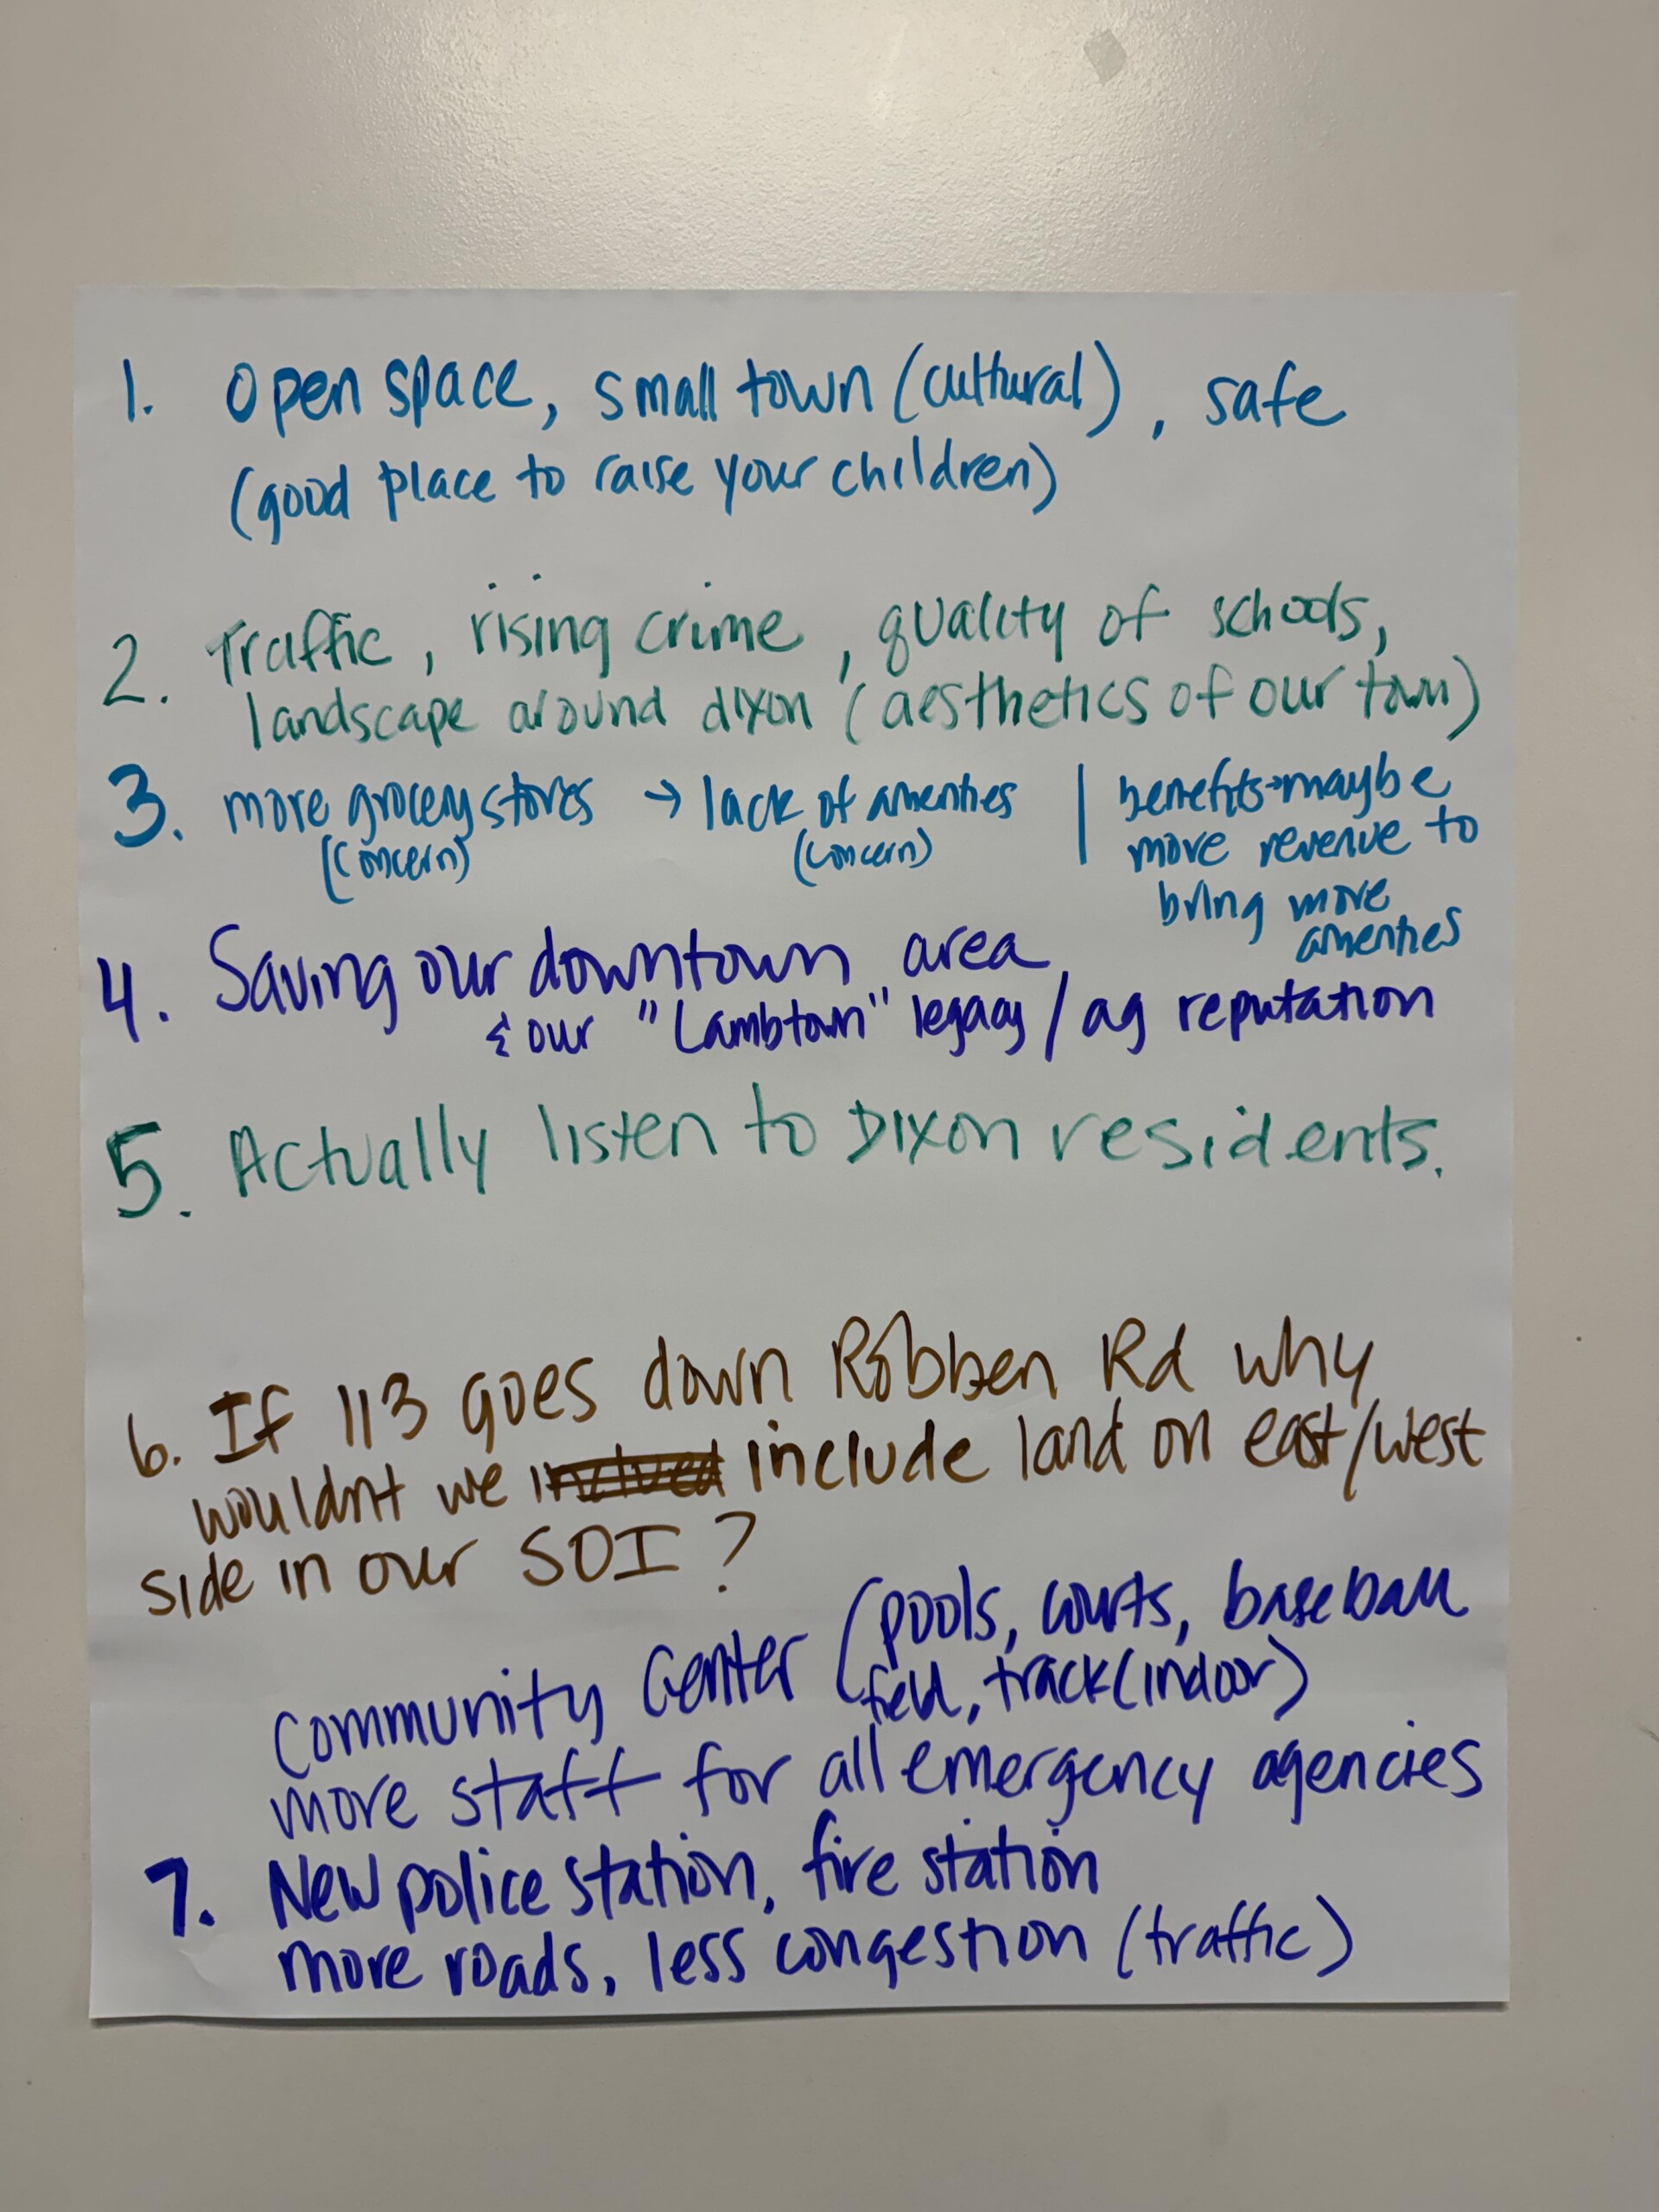 1. Open space, small town (cultural), safe
(good place to raise your children)
2. Traffic, rising crime, quality of schools,
landscape around dixon (aesthetics of our town)
3. more grocery stores → lack of amenties | benefits→maybe
(concern) (concern) more revenue to
bring more
amenties
4. Saving our downtown area
& our "Lambtown" legacy / ag reputation
5. Actually listen to Dixon residents.
6. If 113 goes down Robben Rd why
wouldnt we include land on east/west
side in our SOI?
Community Center (pools, courts, baseball
field, track (indoor)
more staff for all emergency agencies
7. New police station, fire station
more roads, less congestion (traffic)